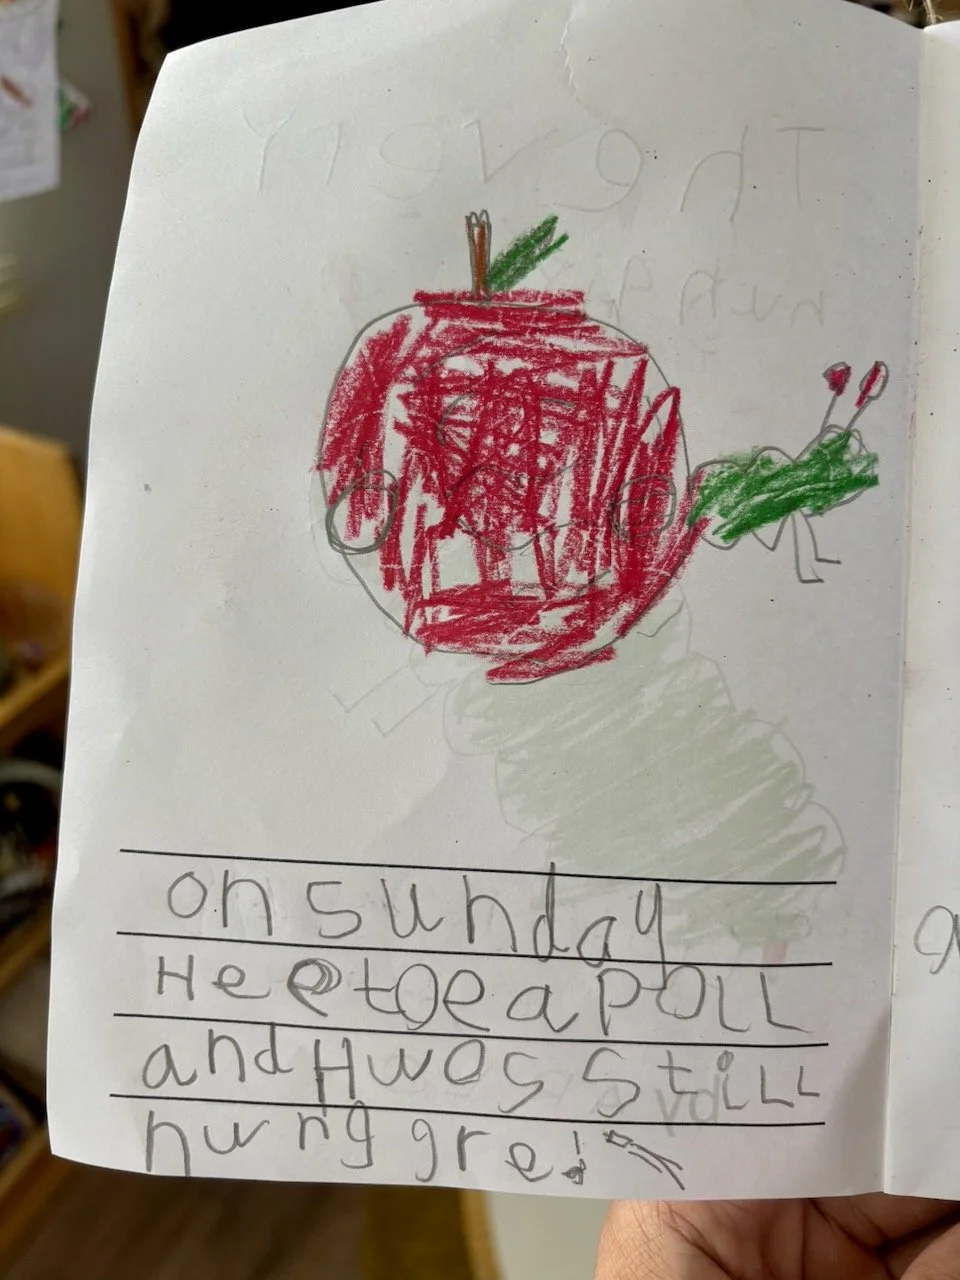 on sunday
Hee toe a poll
and H wos still
hung gre!